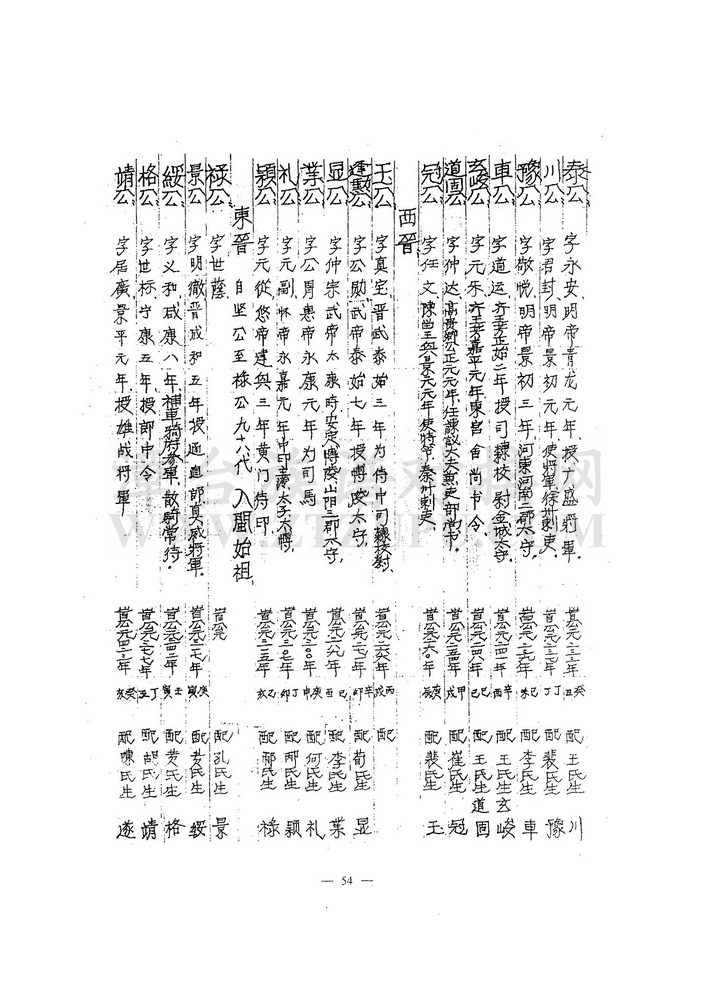 泰公 字永安 明帝青龙元年授广盛将軍 当公元二三三年 癸丑 配王氏生 川
川公 字君封 明帝景初元年使将軍徐州刺吏 当公元二三七年 丁巳 配裴氏生 豫
豫公 字敬悦 明帝景初三年河東河南二郡不守 当公元二三九年 己未 配李氏生 車
車公 字道运 齐王芳正始二年授司隸校尉金城太守 当公元二四一年 辛酉 配王氏生 玄峻
玄峻公 字元乐 齐王芳嘉平元年東宫舍尚书令 当公元二四九年 己巳 配王氏生 道固
道固公 字仲达 高贵鄉公正元元年任諫議大夫兼吏部尚书 当公元二五四年 甲戌 配崔氏生 冠
冠公 字任文 陳留王奂景元元年使特爷秦州刺吏 当公元二六〇年 庚辰 配裴氏生 王
西晉
王公 字真宝 晋武泰始三年为侍中司隸校尉 丙戌 配
逢勲公 字公勛 武帝泰始七年授博陵太守 辛卯 配荀氏生 显
显公 字仲宗 武帝太康时安定博陵山阳三郡不守 己丑 配李氏生 葉
葉公 字公胃 惠帝永康元年为司馬 当公元三〇〇年 庚申 配何氏生 礼
礼公 字元副 怀帝永嘉元年中印 太子太傅 当公元三〇七年 丁卯 配邢氏生 颖
颖公 字元從 愍帝建興三年黄门侍印 当公元三一五年 乙亥 配郗氏生 禄
東晉 自坚公至禄公九十八代 入閩始祖
禄公 字世蔭 当公元 配孔氏生 景
景公 字明徹 晋成和五年授通直郎真威将軍 庚寅 配黄氏生 綏
綏公 字义和 咸康八年神車骑府参軍散騎常待 当公元三四二年 壬寅 配黄氏生 格
格公 字世标 守康五年授郎中令 当公元三七七年 丁丑 配胡氏生 靖
靖公 字居廣 景平元年授雄战将軍 当公元四二三年 癸亥 配陳氏生 遂
— 54 —